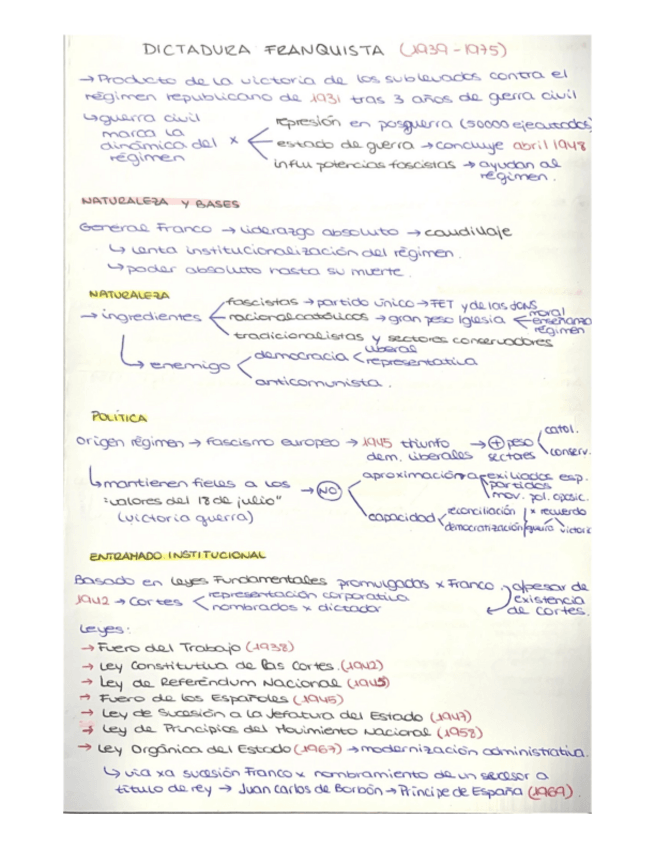 DICTADURA FRANQUISTA (1939-1975)
→ Producto de la victoria de los sublevados contra el
régimen republicano de 1931 tras 3 años de gerra civil
↳ guerra civil
marca la
dinámica del x
régimen
represión en posguerra (50000 ejecutados)
estado de guerra → concluye abril 1948
influ potencias fascistas → ayudan al
régimen.
NATURALEZA Y BASES
General Franco → liderazgo absoluto → caudillaje
↳ lenta institucionalización del régimen.
↳ poder absoluto hasta su muerte.
NATURALEZA
→ ingredientes
fascistas → partido único → FET y de las JONS
nacionalcatólicos → gran peso Iglesia
moral
enseñanza
régimen
tradicionalistas y sectores conservadores
↳ enemigo
democracia
liberal
representativa
anticomunista.
POLÍTICA
Origen régimen → fascismo europeo → 1945 triunfo
dem. liberales
→ + peso
sectores
catol.
conserv.
↳ mantienen fieles a los
"valores del 18 de julio"
(victoria guerra)
→ NO
aproximación a
exiliados esp.
partidos
mov. pol. oposic.
capacidad
reconciliación
democratización
x recuerdo
guerra victoria
ENTRAMADO INSTITUCIONAL
Basado en Leyes Fundamentales promulgadas x Franco
a pesar de
existencia
de cortes.
1942 → Cortes
representación corporativa
nombrados x dictador
Leyes:
→ Fuero del Trabajo (1938)
→ Ley Constitutiva de las Cortes. (1942)
→ Ley de Referéndum Nacional (1945)
→ Fuero de los Españoles (1945)
→ Ley de Sucesión a la Jefatura del Estado (1947)
→ Ley de Principios del Movimiento Nacional (1958)
→ Ley Orgánica del Estado (1967) → modernización administrativa.
↳ via xa sucesión Franco x nombramiento de un sucesor a
título de rey → Juan Carlos de Borbón → Príncipe de España (1969).